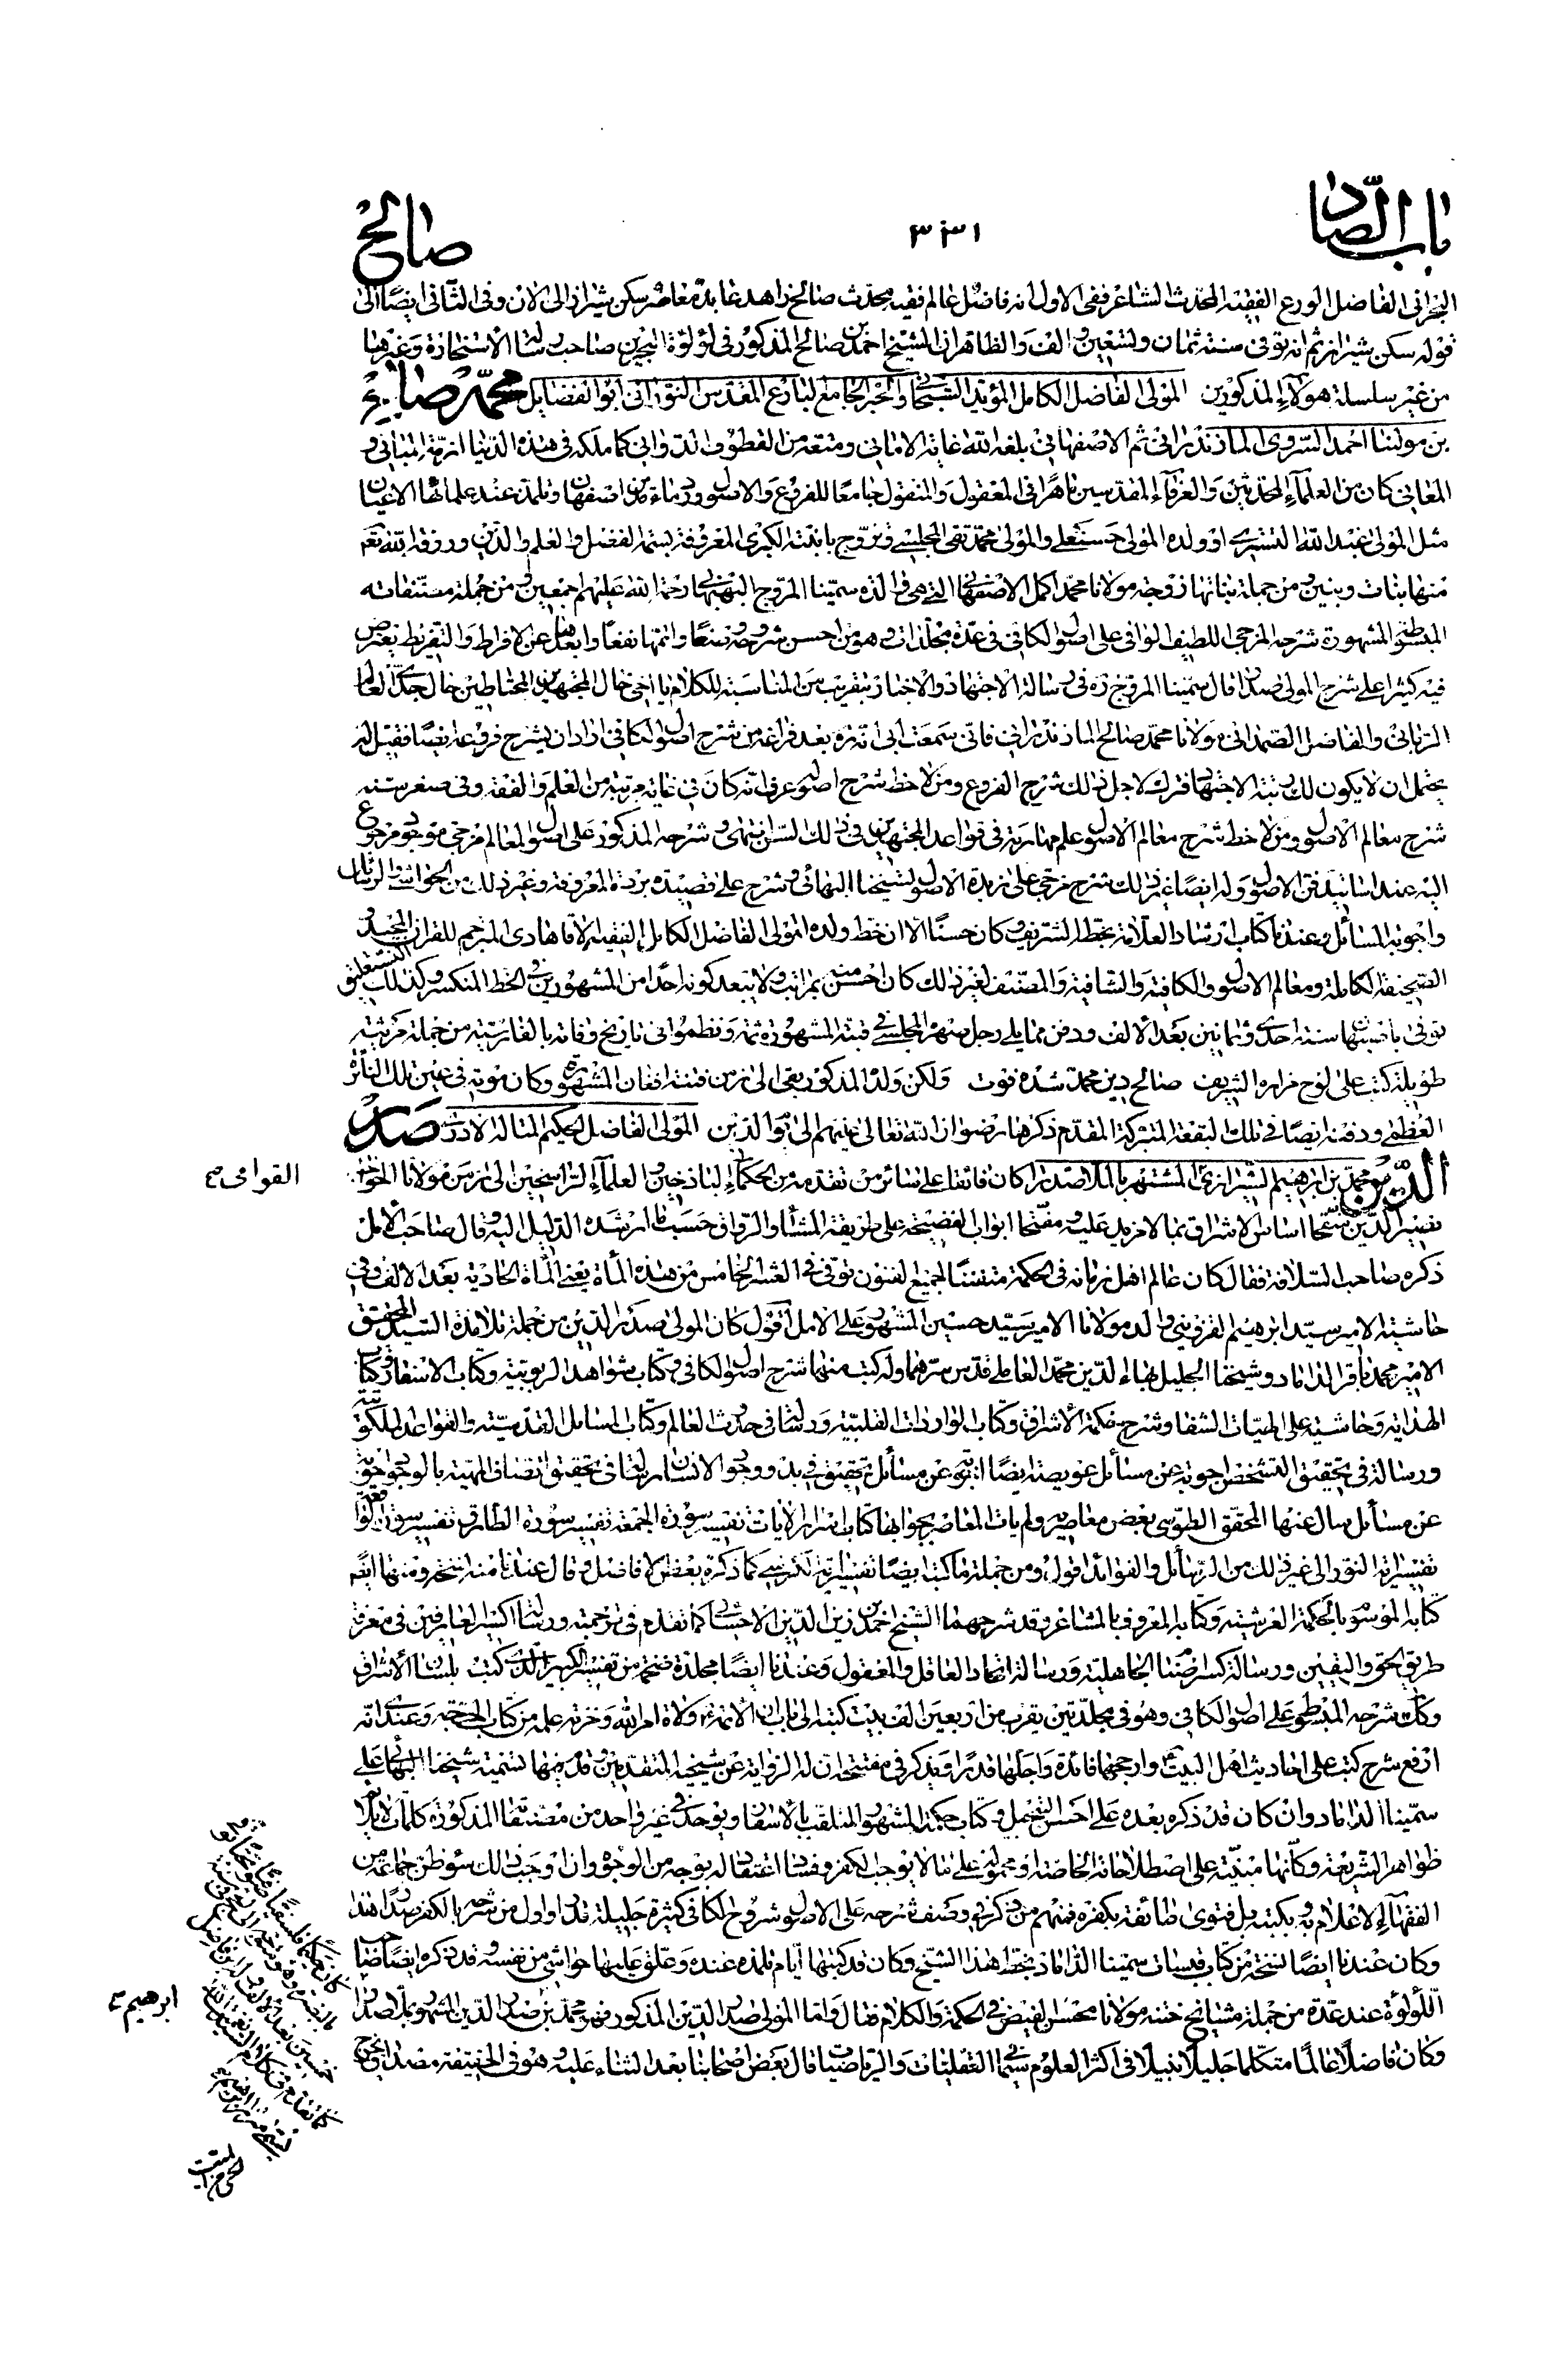 باب الصّاد
٣٣١
صالح
البحرانى الفاضل الورع الفقيه المحدث الشاعر ففى الاول انه فاضل عالم فقيه محدث صالح زاهد عابد معاصر سكن شيراز الى الان وفى الثانى ايضا الى
قوله سكن شيراز ثم انه توفى سنة ثمان وتسعين والف والظاهر ان الشيخ احمد بن صالح المذكور فى لؤلؤة البحرين صاحب رسالة الاستخارة وغيرها
من غير سلسلة هؤلاء المذكورين المولى الفاضل الكامل المؤيد السبحانى والحبر الجامع البارع المقدس النورانى ابو الفضايل محمّد صالح
بن مولينا احمد السروى المازندرانى ثم الاصفهانى بلغه الله غاية الامانى ومتعه من القطوف الدوانى كما ملكه فى هذه الدنيا ازمة المبانى و
المعانى كان من العلماء المحدثين والعرفاء المقدسين ماهرا فى المعقول والمنقول جامعا للفروع والاصول ورد ماء مدين اصفهان وتلمذ عند علمائها الاعيان
مثل المولى عبد الله التسترى او ولده المولى حسنعلى والمولى محمد تقى المجلسى وتزوج بابنته الكبرى المعروفة بسمة الفضل والعلم والدين ورزقه الله تعم
منها بنات وبنين ومن جملة بناتها زوجة مولانا محمد اكمل الاصفهانى التى هى والدة سمينا المروج البهبهانى رحمة الله عليهم اجمعين ومن جملة مصنفاته
المبسوطة المشهورة شرحه المزجى اللطيف الوافى على اصول الكافى فى عدة مجلدات وهو من احسن شروحه وضعا واتمها نفعا وابعدها عن الافراط والتفريط يعترض
فيه كثيرا على شرح المولى صدرا قال سمينا المروج ره فى رسالة الاجتهاد والاخبار بتقريب من المناسبة للكلام يا اخى خال المجتهدين المحتاطين خال جدى العالم
الربانى والفاضل الصمدانى مولانا محمد صالح المازندرانى فانى سمعت ابى انه ره بعد فراغه من شرح اصول الكافى اراد ان يشرح فروعه ايضا فقيل له
يحتمل ان لا يكون لك رتبة الاجتهاد فترك لاجل ذلك شرح الفروع ومن لاحظ شرح اصوله عرف انه كان فى غاية مرتبة من العلم والفقه وفى صغر سنه
شرح معالم الاصول ومن لاحظ شرح معالم الاصول علم مهارته فى قواعد المجتهدين فى ذلك السن انتهى وشرحه المذكور على اصول المعالم مزجى موجود مرجوع
اليه عند اساتيد فن الاصول وله ايضا غير ذلك شرح مزجى على زبدة الاصول لشيخنا البهائى وشرح على قصيدة بردة المعروفة وغير ذلك من الحواشى والرسائل
واجوبة المسائل وعندنا كتاب ارشاد العلامة بخطه الشريف وكان حسنا الا ان خط ولده المولى الفاضل الكامل الفقيه الاقا هادى المترجم للقران المجيد و
الصحيفة الكاملة ومعالم الاصول والكافية والشافية والمصنف لغير ذلك كان احسن منه بمراتب ولا يبعد كونه احدا من المشهورين فى الخط المنكسر وكذلك النستعليق
توفى باصبهان سنة احدى وثمانين بعد الالف ودفن مما يلى رجل صهره المجلسى فى قبته المشهورة ثمة ونظموا فى تاريخ وفاته بالفارسية من جملة مرثية
طويلة كتب على لوح مزاره الشريف صالح دين محمد شده فوت ولكن ولده المذكور بقى الى زمن فتنة افغان المشهورة وكان موته فى عين تلك النائرة
العظمى ودفنه ايضا فى تلك البقعة المتبركة المقدم ذكرها رضوان الله تعالى عليهم الى يوم الدين المولى الفاضل الحكيم المتاله الاديب صدر
الدّين محمد بن ابرهيم الشيرازى المشتهر بالملا صدرا كان فائقا على سائر من تقدمه من الحكماء الباذخين والعلماء الراسخين الى زمن مولانا الخواجة
نصير الدين منقحا اساس الاشراق بما لا مزيد عليه ومفتحا ابواب الفضيحة على طريقة المشاء والرواق حسبما ارشده الدليل اليه قال صاحب الامل
ذكره صاحب السلافة فقال كان عالم اهل زمانه فى الحكمة متقننا لجميع الفنون توفى فى العشر الخامس من هذه المأة يعنى المأة الحادية بعد الالف وفى
حاشية الامير سيد ابرهيم القزوينى والد مولانا الامير سيد حسين المشهور على الامل اقول كان المولى صدر الدين من جملة تلامذة السيد المحقق
الامير محمد باقر الداماد وشيخنا الجليل بهاء الدين محمد العاملى قدس سرهما وله كتب منها شرح اصول الكافى وكتاب شواهد الربوبية وكتاب الاسفار وكتاب
الهداية وحاشية على الهيات الشفا وشرح حكمة الاشراق وكتاب الواردات القلبية ورسالة فى حدوث العالم وكتاب المسائل القدسية والقواعد الملكوتية
ورسالة فى تحقيق التشخص اجوبة عن مسائل عويصة ايضا اجوبة عن مسائل تحقيق فى بدو وجود الانسان رسالة فى تحقيق اتصاف المهية بالوجود اجوبة
عن مسائل سال عنها المحقق الطوسى بعض معاصريه ولم يات المعاصر بجوابها كتاب اسرار الايات تفسير سورة الجمعة تفسير سورة الطارق تفسير سورة الواقعة
تفسير اية النور الى غير ذلك من الرسائل والفوائد اقول ومن جملة ما كتب ايضا تفسير اية الكرسى كما ذكره بعض الافاضل وقال عندنا منه نسخة ومنها ايضا
كتابه الموسوم بالحكمة العرشية وكتابه المعروف بالمشاعر وقد شرحهما الشيخ احمد بن زين الدين الاحسائى كما تقدم فى ترجمته ورسالة اكسير العارفين فى معرفة
طريق الحق واليقين ورسالة كسر اصنام الجاهلية ورسالة اتحاد العاقل والمعقول وعندنا ايضا مجلدة ضخمة من تفسيره الكبير الذى كتب بلسان الاشراق
وكذا شرحه المبسوط على اصول الكافى وهو فى مجلدتين يقرب من اربعين الف بيت كتبه الى باب ان الائمة ع ولاة امر الله وخزنة علمه من كتاب الحجة وعندى انه
ارفع شرح كتب على احاديث اهل البيت ع وارجحها فائدة واجلها قدرا وقد ذكر فى مفتتحه ان له الرواية عن شيخيه المتقدمين وقدم فيها تسمية شيخنا البهائى على
سمينا الداماد وان كان قد ذكره بعده على احسن التجمل وكتاب حكمته المشهور المتلقب بالاسفار ويوجد فى غير واحد من مصنفاته المذكورة كلمات لا يلائم
ظواهر الشريعة وكانها مبنية على اصطلاحاته الخاصة او محمولة على ما لا يوجب الكفر وفساد اعتقاد له بوجه من الوجوه وان اوجب ذلك سوء ظن جماعة من
الفقهاء الاعلام به وبكتبه بل فتوى طائفة بكفره فمنهم من ذكر فى وصف شرحه على الاصول شروح الكافى كثيرة جليلة قدرا واول من شرحه بالكفر صدرا هذا
وكان عندنا ايضا نسخة من كتاب قبسات سمينا الداماد بخط هذا الشيخ وكان قد كتبها ايام تلمذه عنده وعلق عليها حواشى من نفسه وقد ذكره ايضا صاحب
اللؤلؤة عند عدة من جملة مشايخ ختنه مولانا محسن الفيض فى الحكمة والكلام فقال واما المولى صدر الدين المذكور فهو محمد بن صدر الدين المشهور بملا صدرا
وكان فاضلا عالما متكلما جليلا نبيلا فى اكثر العلوم سيما العقليات والرياضيات قال بعض اصحابنا بعد الثناء عليه هو فى الحقيقة مصداق يخرج
القوامى
ابرهيم
الحى من الميت